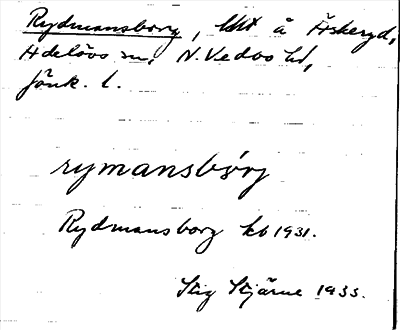 Rydmansborg, lht å Äskeryd,
Adelövs sn, N. Vedbo hd,
Jönk. l.
rymansbǿrj
Rydmansborg kb 1931.
Stig Stjärne 1933.